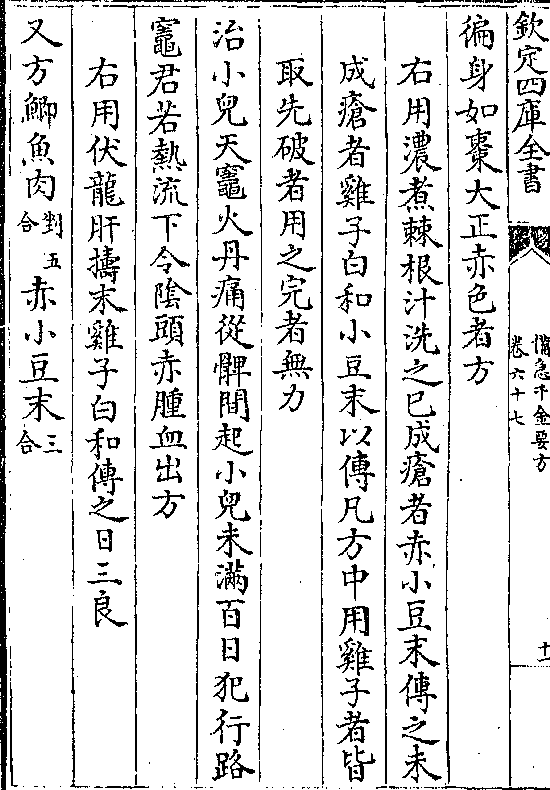 欽定四庫全書
備急千金要方
卷六十七
十一
徧身如棗大正赤色者方
右用濃煮棘根汁洗之已成瘡者赤小豆末傳之未
成瘡者雞子白和小豆末以傳凡方中用雞子者皆
取先破者用之完者無力
治小兒天竈火丹痛從髀間起小兒未滿百日犯行路
竈君若熱流下令陰頭赤腫血出方
右用伏龍肝擣末雞子白和傳之日三良
又方鯽魚肉剉五合赤小豆末三合